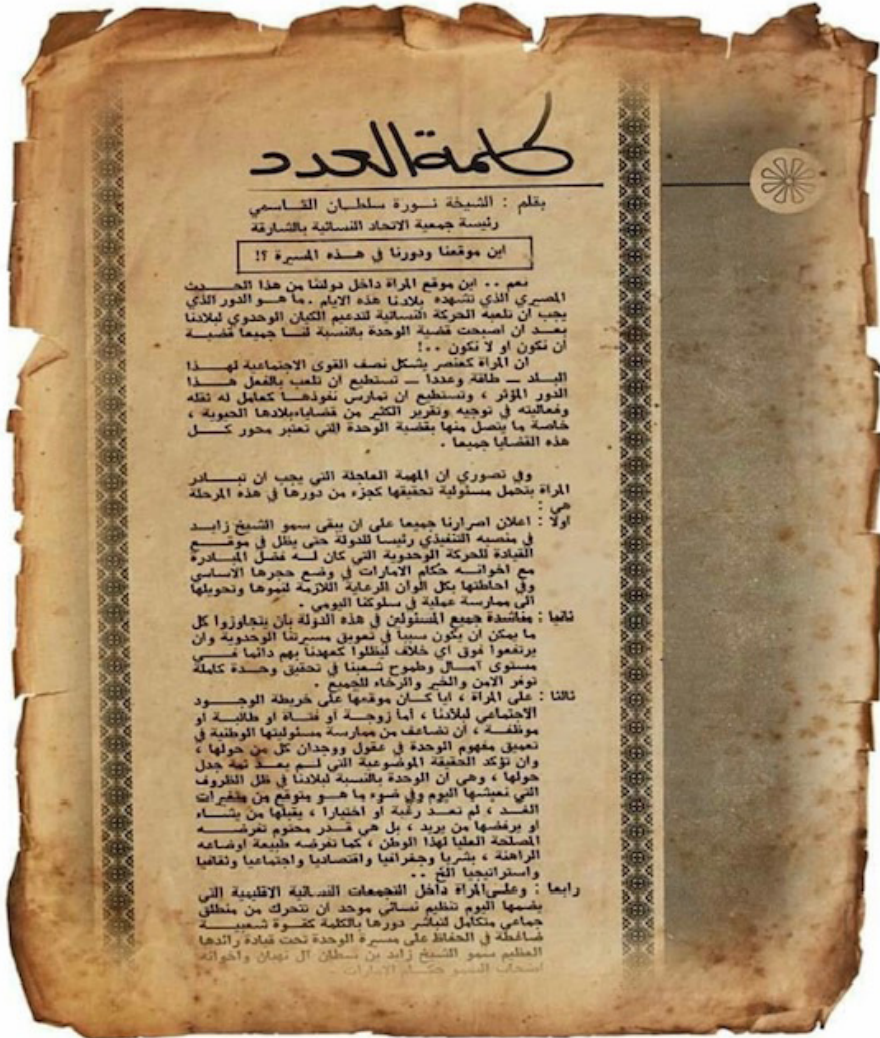 كلمة العدد
بقلم : الشيخة نـورة سلطـان القـاسمي
رئيسة جمعية الاتحاد النسائية بالشارقة
اين موقعنا ودورنا في هـذه المسيرة ؟!
نعم .. اين موقع المراة داخل دولتنا من هذا الحـدث
المصيري الذي تشهده بلادنا هذه الايام . ما هـو الدور الذي
يجب ان تلعبه الحركة النسائية لتدعيم الكيان الوحدوي لبلادنا
بعـد ان اصبحت قضية الوحدة بالنسبة لنـا جميعا قضيـة
أن نكون او لا نكون ..!
ان المراة كعنصر يشكل نصف القوى الاجتماعية لهـذا
البلـد — طاقة وعددا — تستطيع ان تلعب بالفعل هـذا
الدور المؤثر ، وتستطيع ان تمارس نفوذهـا كعامل له ثقله
وفعاليته في توجيه وتقرير الكثير من قضايا بلادها الحيوية ،
خاصة ما يتصل منها بقضية الوحدة التي تعتبر محور كـل
هذه القضايا جميعا .
وفي تصوري ان المهمة العاجلة التي يجب ان تبـادر
المراة بتحمل مسئولية تحقيقها كجزء من دورها في هذه المرحلة
هي :
اولا : اعلان اصرارنا جميعا على ان يبقى سمو الشيخ زايـد
في منصبه التنفيذي رئيسا للدولة حتى يظل في موقـع
القيادة للحركة الوحدوية التي كان لـه فضل المبـادرة
مع اخوانـه حكام الامارات في وضع حجرها الاساسي
وفي احاطتها بكل الوان الرعاية اللازمة لنموها وتحويلها
الى ممارسة عملية في سلوكنا اليومي .
ثانيا : مناشدة جميع المسئولين في هذه الدولة بان يتجاوزوا كل
ما يمكن ان يكون سببا في تعويق مسيرتنا الوحدوية وان
يرتفعوا فوق اي خلاف ليظلوا كعهدنا بهم دائما فـي
مستوى آمـال وطموح شعبنا في تحقيق وحـدة كاملة
توفر الامن والخير والرخاء للجميع .
ثالثا : على المراة ، ايا كـان موقعها على خريطة الوجـود
الاجتماعي لبلادنا ، أما زوجـة او فتـاة او طالبـة او
موظفـة ، أن تضاعف من ممارسة مسئوليتها الوطنية في
تعميق مفهوم الوحدة في عقول ووجدان كل من حولها ،
وان تؤكد الحقيقة الموضوعية التي لـم يعـد ثمة جدل
حولها ، وهي ان الوحدة بالنسبة لبلادنا في ظل الظروف
التي نعيشها اليوم وفي ضوء ما هـو متوقع من متغيرات
الغـد ، لم تعـد رغبة او اختيارا ، يقبلها من يشـاء
او يرفضها من يريد ، بل هي قـدر محتوم تفرضـه
المصلحة العليا لهذا الوطن ، كما تفرضه طبيعة اوضاعه
الراهنة ، بشريا وجغرافيا واقتصاديا واجتماعيا وثقافيا
واستراتيجيا الخ ..
رابعا : وعلى المراة داخل التجمعات النسائية الاقليمية التي
يضمها اليوم تنظيم نسائي موحد ان تتحرك من منطلق
جماعي متكامل لتباشر دورها بالكلمة كقـوة شعبيـة
ضاغطة في الحفاظ على مسيرة الوحدة تحت قيادة رائدها
العظيم سمو الشيخ زايد بن سلطان ال نهيان واخوانه
اصحاب السمو حكـام الامارات